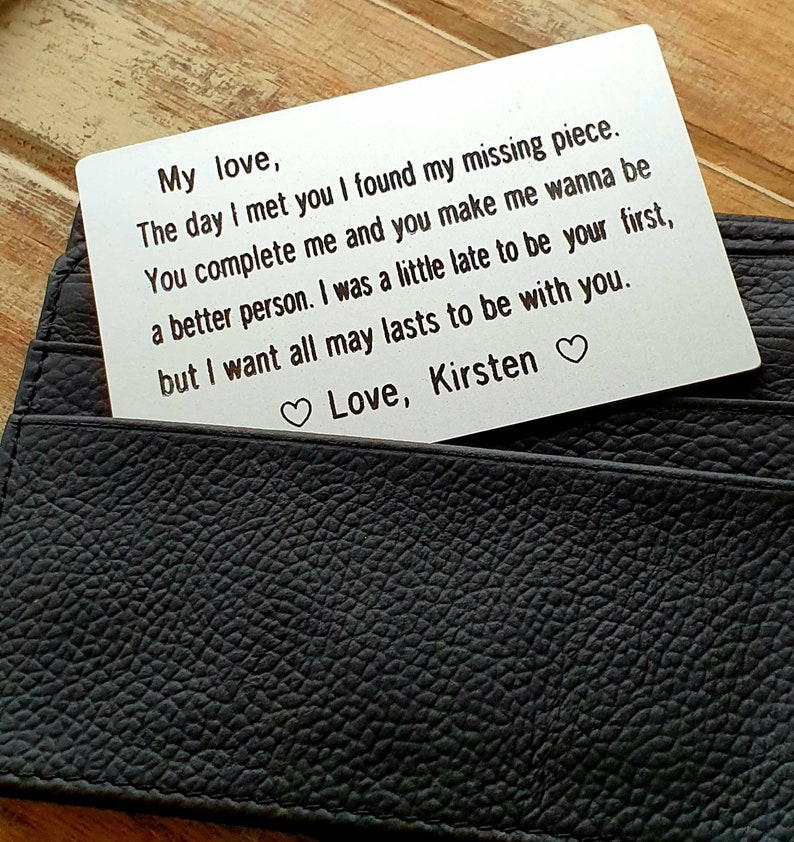 My love,
The day I met you I found my missing piece.
You complete me and you make me wanna be
a better person. I was a little late to be your first,
but I want all may lasts to be with you.
♡ Love, Kirsten ♡